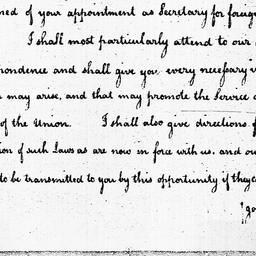 ned of your appointment as Secretary for foreig
I shall most particularly attend to our
pondence and shall give you every necessary
may arise, and that may promote the Service
of the Union. I shall also give directions
ion of such Laws as are now in force with us. and ou
to be transmitted to you by this opportunity if they c